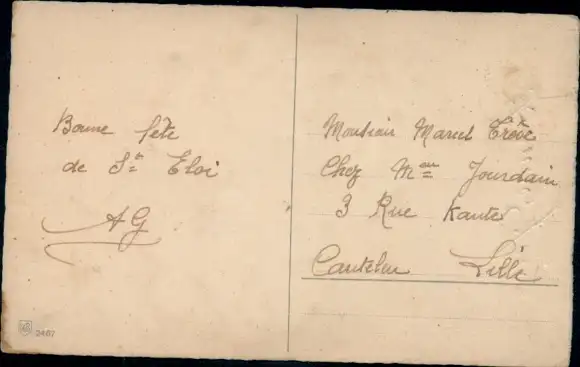 Bonne fête
de St Eloi
AG
2467
Monsieur Marcel Crève
Chez Mme Jourdain
3 Rue Kante
Canteleu Lille